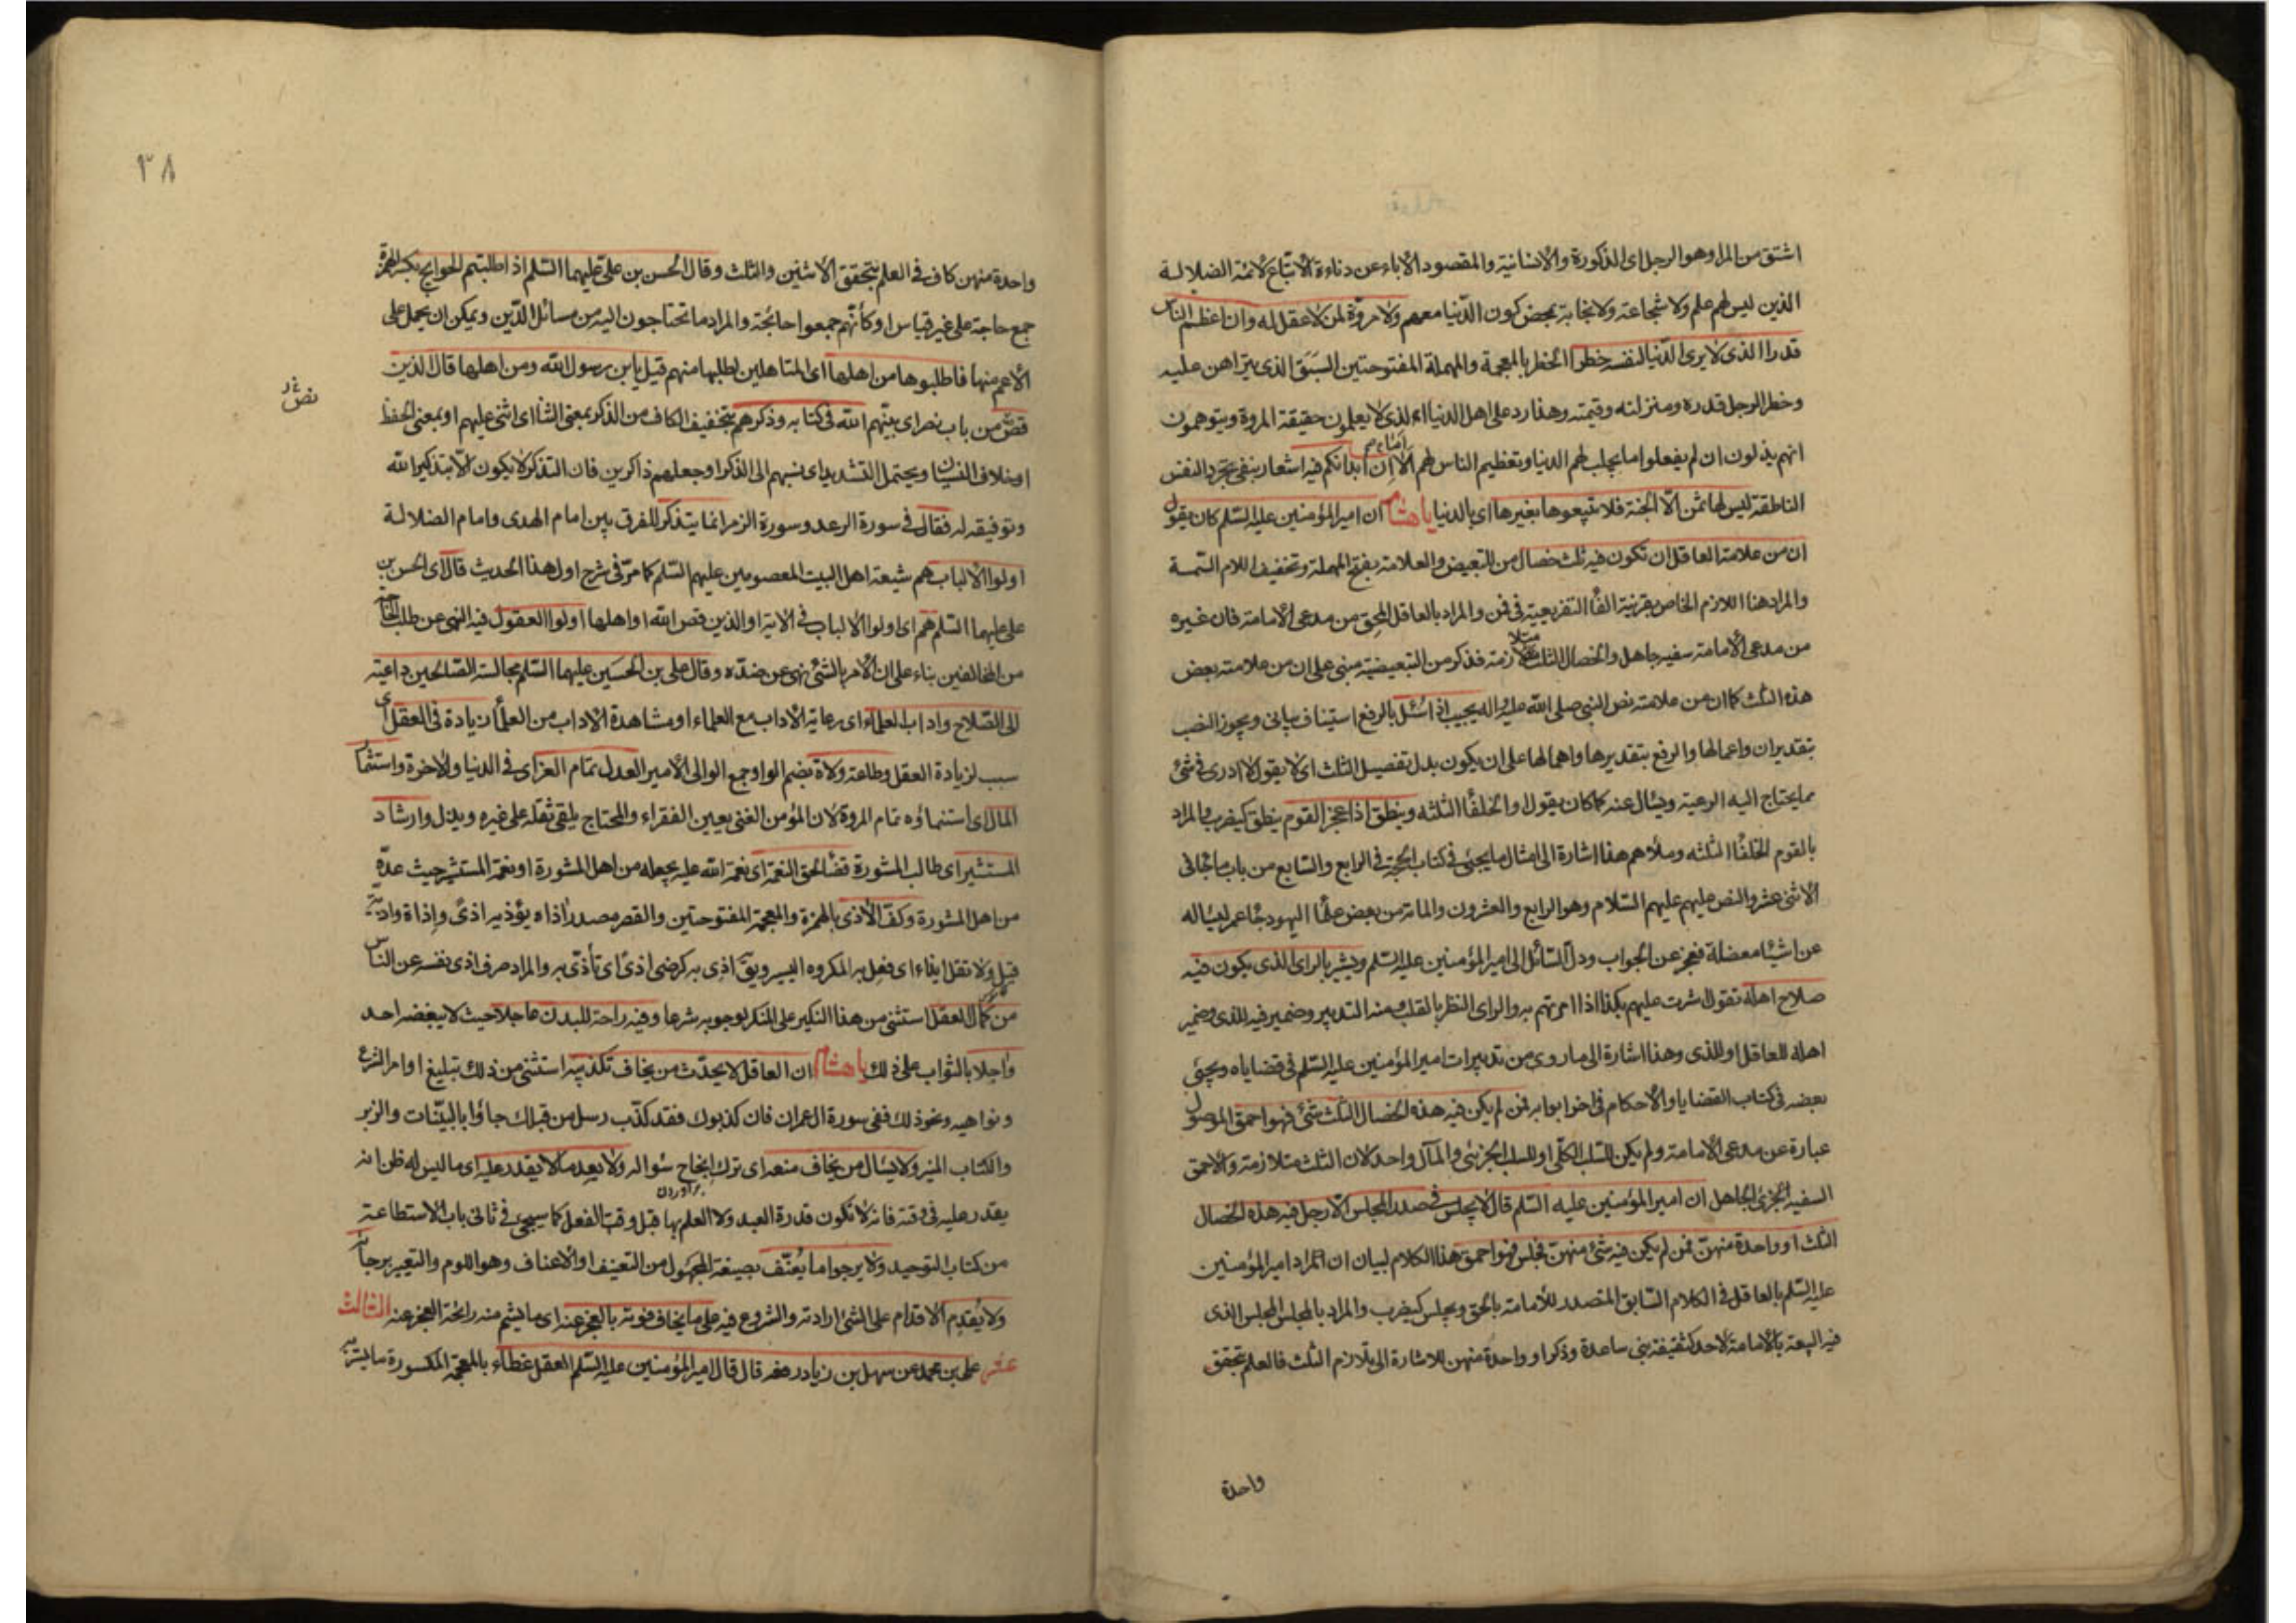 اشتق من المرا وهو الرجل اى الذكورة والانسانية والمقصود الاباء عن دناءة الاتباع لائمة الضلالة
الذين ليس لهم علم ولا شجاعة ولا نجابة بمحض كون الدّنيا معهم ولا مروّة لمن لا عقل له وان اعظم الناس
قدرا الذى لا يرى الدّنيا لنفسه خطرا الخطر بالمعجمة والمهملة المفتوحتين السَبَق الذى يتراهن عليه
وخطر الرجل قدره ومنزلته وقيمته وهذا رد على اهل الدنيا الذى لا يعلمون حقيقة المروة ويتوهمون
انهم يذلون ان لم يفعلوا ما يجلب لهم الدنيا وتعظيم الناس لهم الا اِنّ ابدانكم فيه اشعار بنفى تجرد النفس
الناطقة ليس لها ثمن الّا الجنة فلا تبيعوها بغيرها اى بالدنيا يا هشام ان امير المؤمنين عليه السّلم كان يقول
ان من علامة العاقل ان تكون فيه ثلث خصال من للتبعيض والعلامة بفتح المهملة وتخفيف اللام السّمة
والمراد هنا اللازم الخاص بقرينة الفاء التفريعية فى فمن والمراد بالعاقل المحق من مدعى الامامة فان غيره
من مدعى الامامة سفيه جاهل والخصال الثلث متلازمة فذكر من التبعيضية مبنى على ان من علامته بعض
هذه الثلث كما ان من علامته نص النبى صلى الله عليه واله يجيب اذا سُئل بالرفع استيناف بيانى ويجوز النصب
بتقدير ان واعمالها والرفع بتقديرها واهمالها على ان يكون بدل تفصيل الثلث اى لا يقول لا ادرى فى شئ
مما يحتاج اليه الرعية ويسأل عنه كما كان يقول الخلفاء الثلثه وينطق اذا عجز القوم ينطق كيضرب والمراد
بالقوم الخلفاء الثلثه وملأهم هذا اشارة الى امثال ما يجيئ فى كتاب الحجة فى الرابع والسّابع من باب ما جاء فى
الاثنى عشر والنص عليهم عليهم السّلام وهو الرابع والعشرون والمائة من بعض علماء اليهود جاء عمر ليسأله
عن اشياء معضلة فعجز عن الجواب ودل السّائل الى امير المؤمنين عليه السّلم ويشير بالراى الذى يكون فيه
صلاح اهله تقول اشرت عليهم بكذا اذا امرتهم به والراى النظر بالقلب ومنه التدبير وضمير فيه للذى وضمير
اهله للعاقل او للذى وهذا اشارة الى ما روى من تدبيرات امير المؤمنين عليه السّلم فى قضاياه ويجيئ
بعضه فى كتاب القضايا والاحكام فى اخر ابوابه فمن لم يكن فيه هذه الخصال الثلث شئ فهو احمق الموصول
عبارة عن مدعى الامامة ولم يكن للسلب الكلّى او للسلب الجزئى والمآل واحد لان الثلث متلازمة والاحمق
السفيه الجزئ الجاهل ان امير المؤمنين عليه السّلم قال لا يجلس فى صدر المجلس الّا رجل فيه هذه الخصال
الثلث او واحدة منهنّ فمن لم يكن فيه شئ منهنّ فجلس فهو احمق هذا الكلام لبيان ان المراد امير المؤمنين
عليه السّلم بالعاقل فى الكلام السّابق المتصدر للامامة بالحق ويجلس كيضرب والمراد بالمجلس المجلس الذى
فيه البيعة بالامامة لاحد كسقيفة بنى ساعدة وذكر او واحدة منهن للاشارة الى تلازم الثلث فالعلم بتحقق
واحدة
٣٨
واحدة منهن كاف فى العلم بتحقق الاثنين والثلث وقال الحسن بن على عليهما السّلم اذا طلبتم الحوايج بكسر الهمزة
جمع حاجة على غير قياس او كأنّهم جمعوا حائجة والمراد ما تحتاجون اليه من مسائل الدّين ويمكن ان يحمل على
الاعم منها فاطلبوها من اهلها اى المتاهلين لطلبها منهم قيل يا بن رسول الله ومن اهلها قال الذين
قصّ من باب نصر اى بيّنهم الله فى كتابه وذكرهم بتخفيف الكاف من الذكر بمعنى الثناء اى اثنى عليهم او بمعنى الحفظ
او خلاف النسيان ويحتمل التشديد اى نسبهم الى الذكر او جعلهم ذاكرين فان التذكر لا يكون الّا بتذكير الله
وتوفيقه له فقال فى سورة الرعد وسورة الزمر انما يتذكر للفرق بين امام الهدى وامام الضلالة
اولوا الالباب هم شيعة اهل البيت المعصومين عليهم السّلم كما مرّ فى شرح اول هذا الحديث قال اى الحسن بن
على عليهما السّلم هم اى اولوا الالباب فى الاية او الذين قص الله او اهلها اولوا العقول فيه النهى عن طلب الحاجة
من المخالفين بناء على ان الامر بالشئ نهى عن ضدّه وقال على بن الحسَين عليهما السّلم مجالسة الصّالحين داعية
الى الصّلاح واداب العلماء اى رعاية الاداب مع العلماء او مشاهدة الاداب من العلماء زيادة فى العقل اى
سبب لزيادة العقل وطاعة ولاة بضم الواو جمع الوالى الأمير العدل تمام العز اى فى الدنيا والاخرة واستثمار
المال اى استنماؤه تمام المروة لان المؤمن الغنى يعين الفقراء والمحتاج يلقى ثقله على غيره ويذل وارشاد
المستشير اى طالب المشورة قضاء لحق النعمة اى نعمة الله عليه بجعله من اهل المشورة او نعمة المستشير حيث عدّه
من اهل المشورة وكفّ الاذى بالهمزة والمعجمة المفتوحتين والقصر مصدر اذاه يؤذيه اذىً واذاة واذية
قيل ولا تقل ايذاء اى فعل به المكروه اليسير ويق اذِى به كرضى اذىً اى تأذّى به والمراد صرف اذى نفسه عن الناس
من كمال العقل استثنى من هذا النكير على المنكر لوجوبه شرعا وفيه راحة للبدن عاجلا حيث لا يبغضه احد
واجلا بالثواب على ذلك يا هشام ان العاقل لا يحدّث من يخاف تكذيبه استثنى من ذلك تبليغ اوامر الشرع
ونواهيه ونحو ذلك ففى سورة ال عمران فان كذبوك فقد كذّب رسل من قبلك جاؤا بالبيّنات والزبر
والكتاب المنير ولا يسأل من يخاف منعه اى ترك انجاح سؤاله ولا يعد ما لا يقدر عليه اى ما ليس له ظن انه
براوردن
يقدر عليه فى وقته فانه لا تكون قدرة العبد ولا العلم بها قبل وقت الفعل كما سيجئ فى ثانى باب الاستطاعة
من كتاب التوحيد ولا يرجو ما يُعنّف بصيغة المجهول من التعنيف او الاعناف وهو اللوم والتعيير برجائه
ولا يُقدِم الاقدام على الشئ ارادته والشروع فيه على ما يخاف فوته بالعجز عنه اى ما يشم منه رائحة العجز عنه الثالث
عشر على بن محمد عن سهل بن زياد رفعه قال قال امير المؤمنين عليه السّلم العقل غطاء بالمعجمة المكسورة ما يستر به